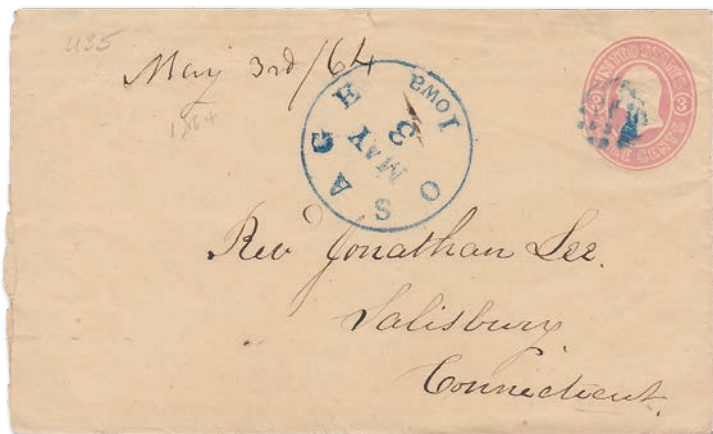 U35
May 3rd/64
1864
OSAGE
Iowa
MAY
3
UNITED STATES
3
THREE CENTS
Rev Jonathan Lee.
Salisbury
Connecticut.